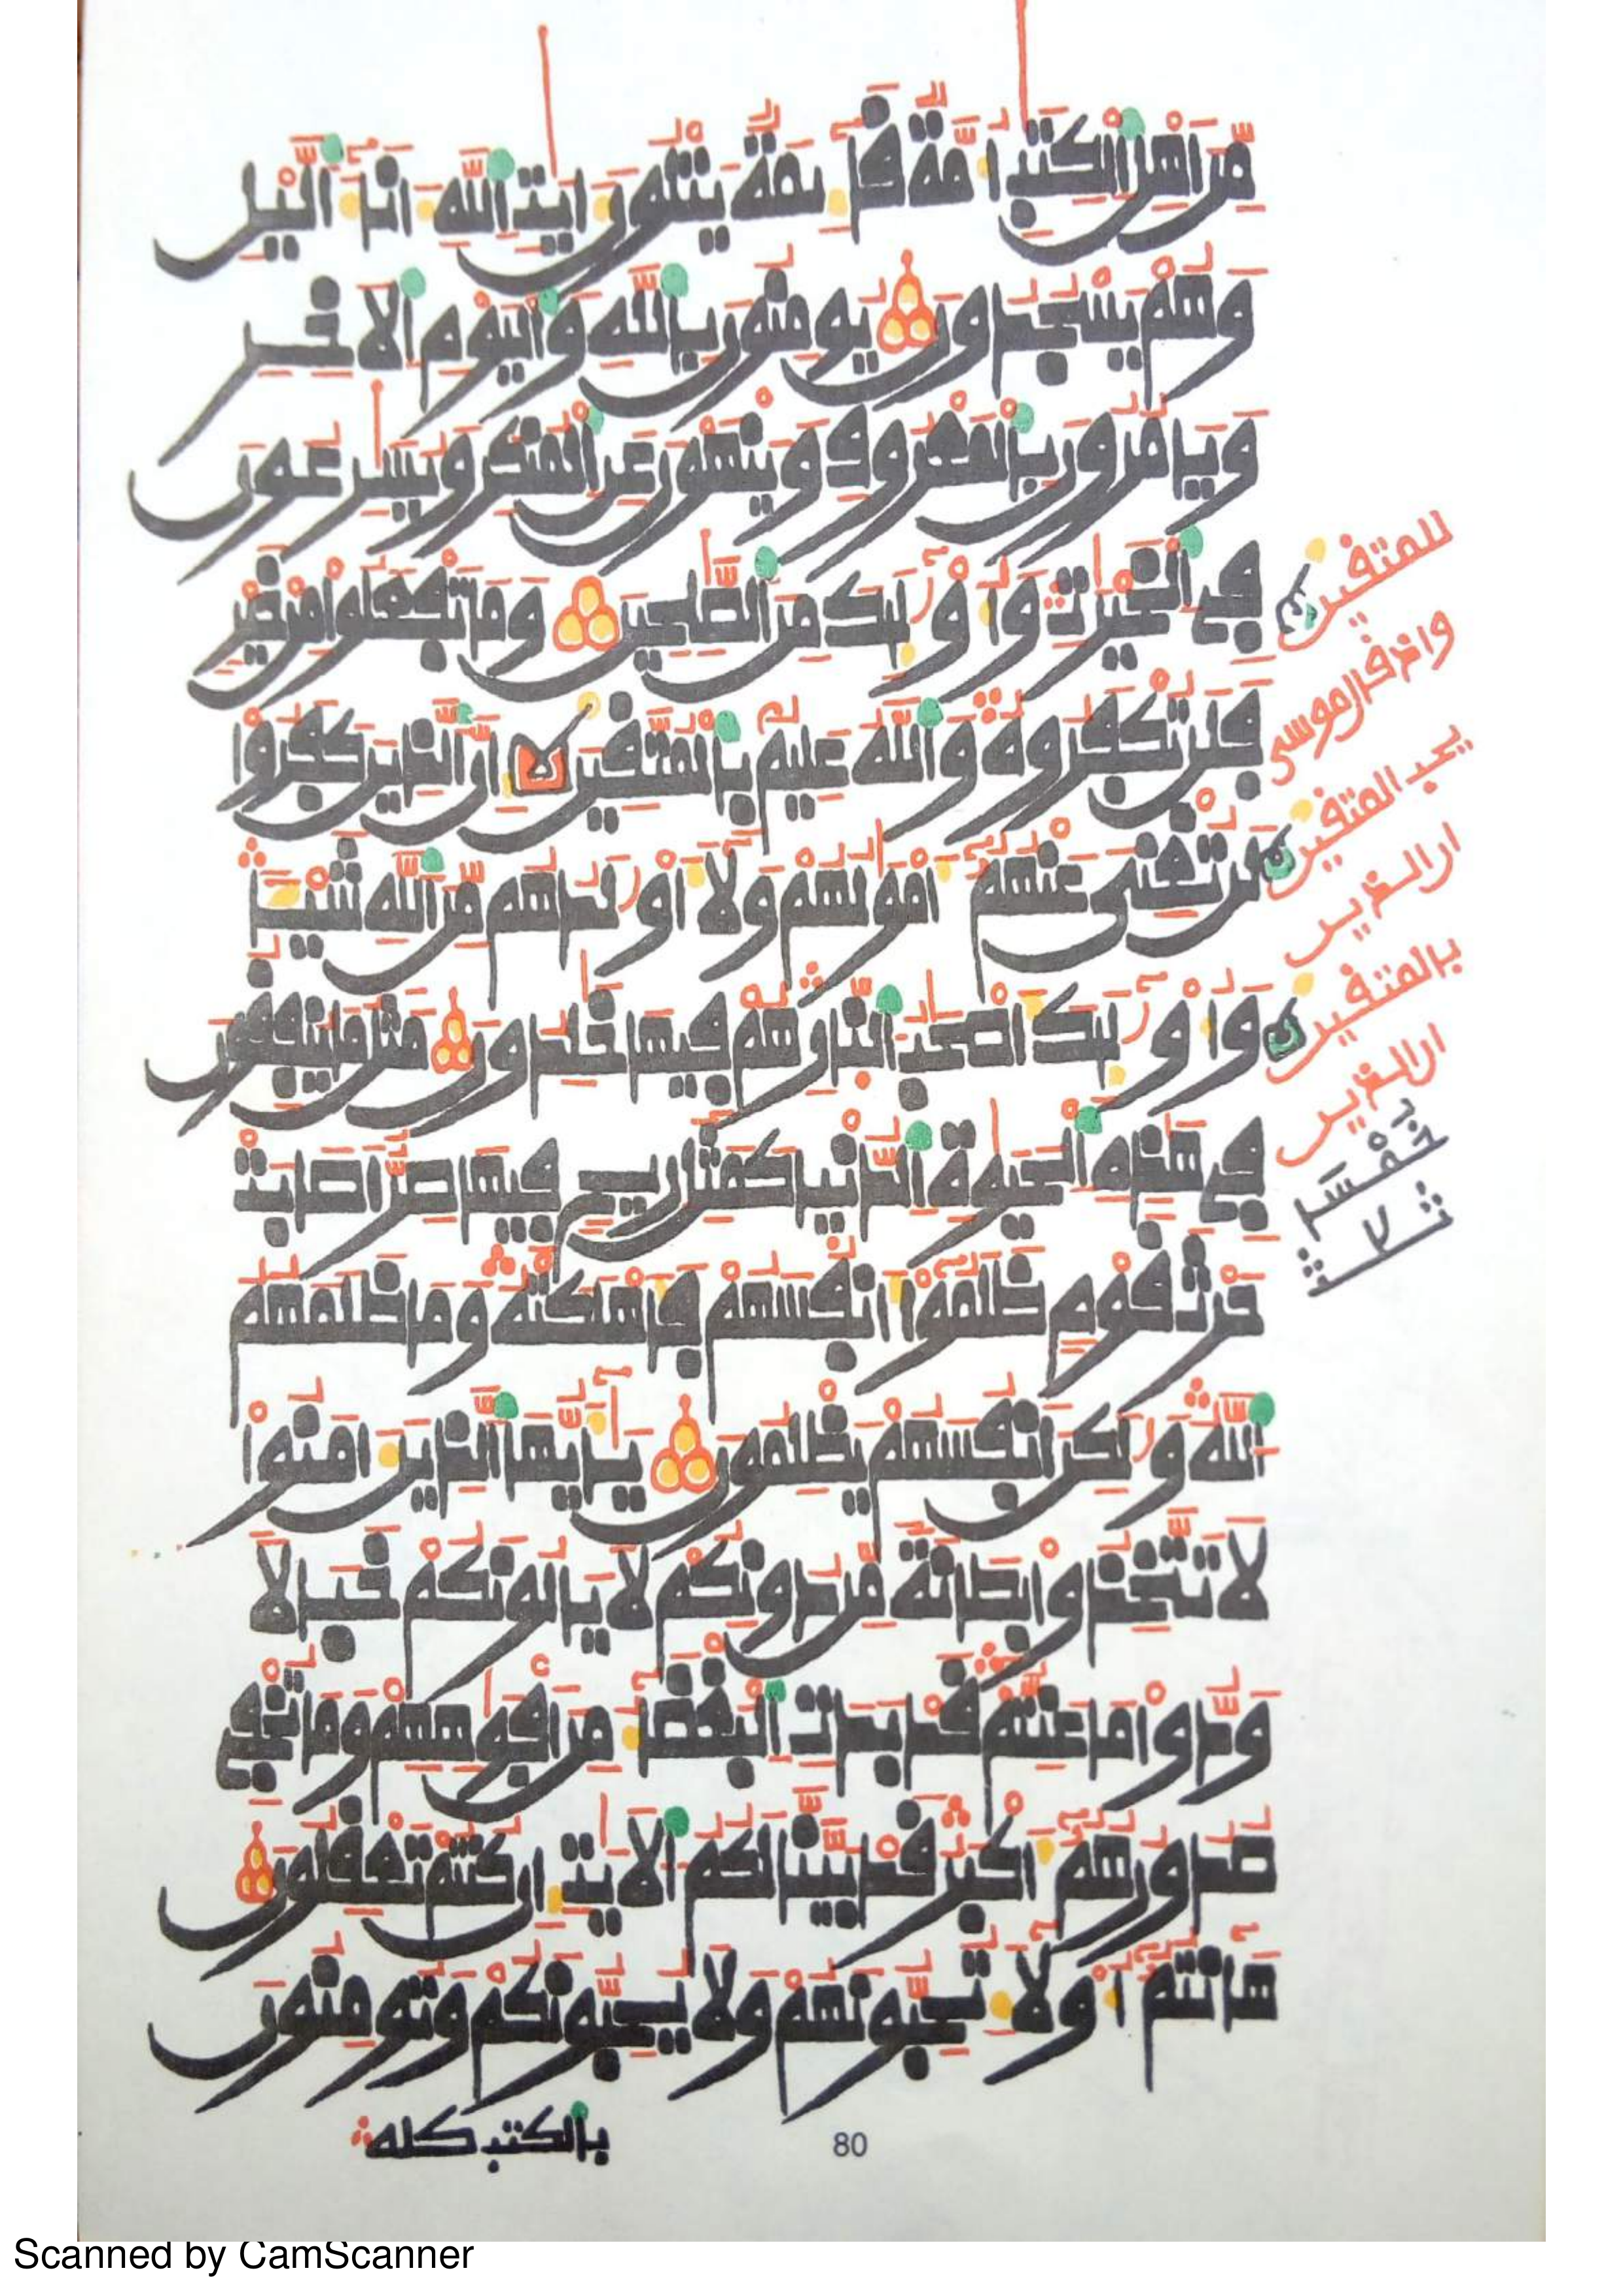 مِّنَ اَهْلِ اِ۬لْكِتَٰبِ أُمَّةٞ قَآئِمَةٞ يَتْلُونَ ءَايَٰتِ اِ۬للَّهِ ءَانَآءَ اَ۬لَّيْلِ
وَهُمْ يَسْجُدُونَ يُومِنُونَ بِاللَّهِ وَالْيَوْمِ اِ۬لَاخِرِ
وَيَامُرُونَ بِالْمَعْرُوفِ وَيَنْهَوْنَ عَنِ اِ۬لْمُنكَرِ وَيُسَٰرِعُونَ
فِے اِ۬لْخَيْرَٰتِ وَأُوْلَٰٓئِكَ مِنَ اَ۬لصَّٰلِحِينَ وَمَا تَفْعَلُواْ مِنْ خَيْرٖ
فَلَن تُكْفَرُوهُ وَاللَّهُ عَلِيمُۢ بِالْمُتَّقِينَ إِنَّ اَ۬لذِينَ كَفَرُواْ
لَن تُغْنِيَ عَنْهُمُۥٓ أَمْوَٰلُهُمْ وَلَآ أَوْلَٰدُهُم مِّنَ اَ۬للَّهِ شَيْـٔاٗ
وَأُوْلَٰٓئِكَ أَصْحَٰبُ اُ۬لنّ۪ارِ هُمْ فِيهَا خَٰلِدُونَ مَثَلُ مَا يُنفِقُونَ
فِے هَٰذِهِ اِ۬لْحَيَوٰةِ اِ۬لدُّنْيَا كَمَثَلِ رِيحٖ فِيهَا صِرٌّ اَصَابَتْ
حَرْثَ قَوْمٖ ظَلَمُوٓاْ أَنفُسَهُمْ فَأَهْلَكَتْهُ وَمَا ظَلَمَهُمُ
اُ۬للَّهُ وَلَٰكِنَ اَنفُسَهُمْ يَظْلِمُونَ يَٰٓأَيُّهَا اَ۬لذِينَ ءَامَنُواْ
لَا تَتَّخِذُواْ بِطَانَةٗ مِّن دُونِكُمْ لَا يَالُونَكُمْ خَبَالاٗ
وَدُّواْ مَا عَنِتُّمْ قَدْ بَدَتِ اِ۬لْبَغْضَآءُ مِنَ اَفْوَٰهِهِمْ وَمَا تُخْفِے
صُدُورُهُمُۥٓ أَكْبَرُ قَدْ بَيَّنَّا لَكُمُ اُ۬لَايَٰتِ إِن كُنتُمْ تَعْقِلُونَ
هَٰٓأَنتُمُۥٓ أُوْلَآءِ تُحِبُّونَهُمْ وَلَا يُحِبُّونَكُمْ وَتُومِنُونَ
بِالْكِتَٰبِ كُلِّهِ
80
للمتقين
وإذ قال موسى
يحب المتقين
إن الذين
بالمتقين
إن الذين
Scanned by CamScanner